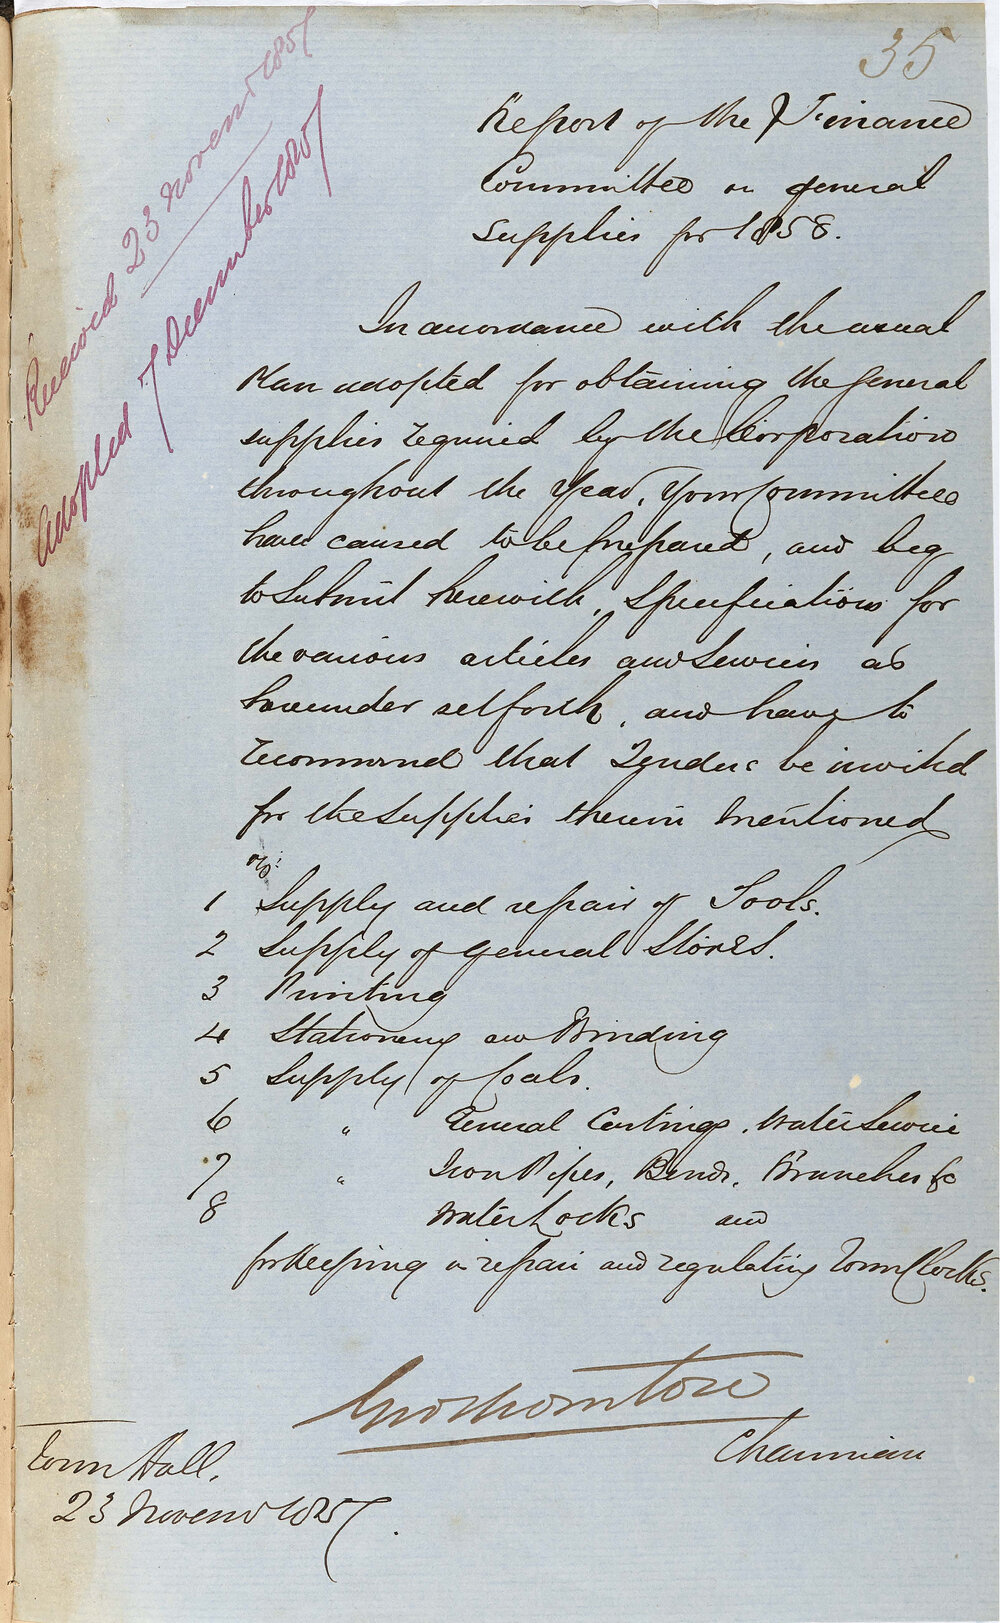 35
Received 23 Novemr 1857
Adopted 7 December 1857
Report of the Finance
Committee on general
supplies for 1858.
In accordance with the usual
Plan adopted for obtaining the general
supplies required by the Corporation
throughout the Year, Your Committee
have caused to be prepared, and beg
to submit herewith, Specifications for
the various articles and Services as
hereunder set forth, and have to
recommend that Tenders be invited
for the supplies therein mentioned
viz:
1 Supply and repair of Tools.
2 Supply of general Stores.
3 Printing
4 Stationery and Binding
5 Supply of Coals.
6 " General Castings, Water Service
7 " Iron Pipes, Bends, Branches &c
8 Water Cocks and
for keeping in repair and regulating Town Clocks.
Geo Thornton
Chairman
Town Hall,
23 Novemr 1857.